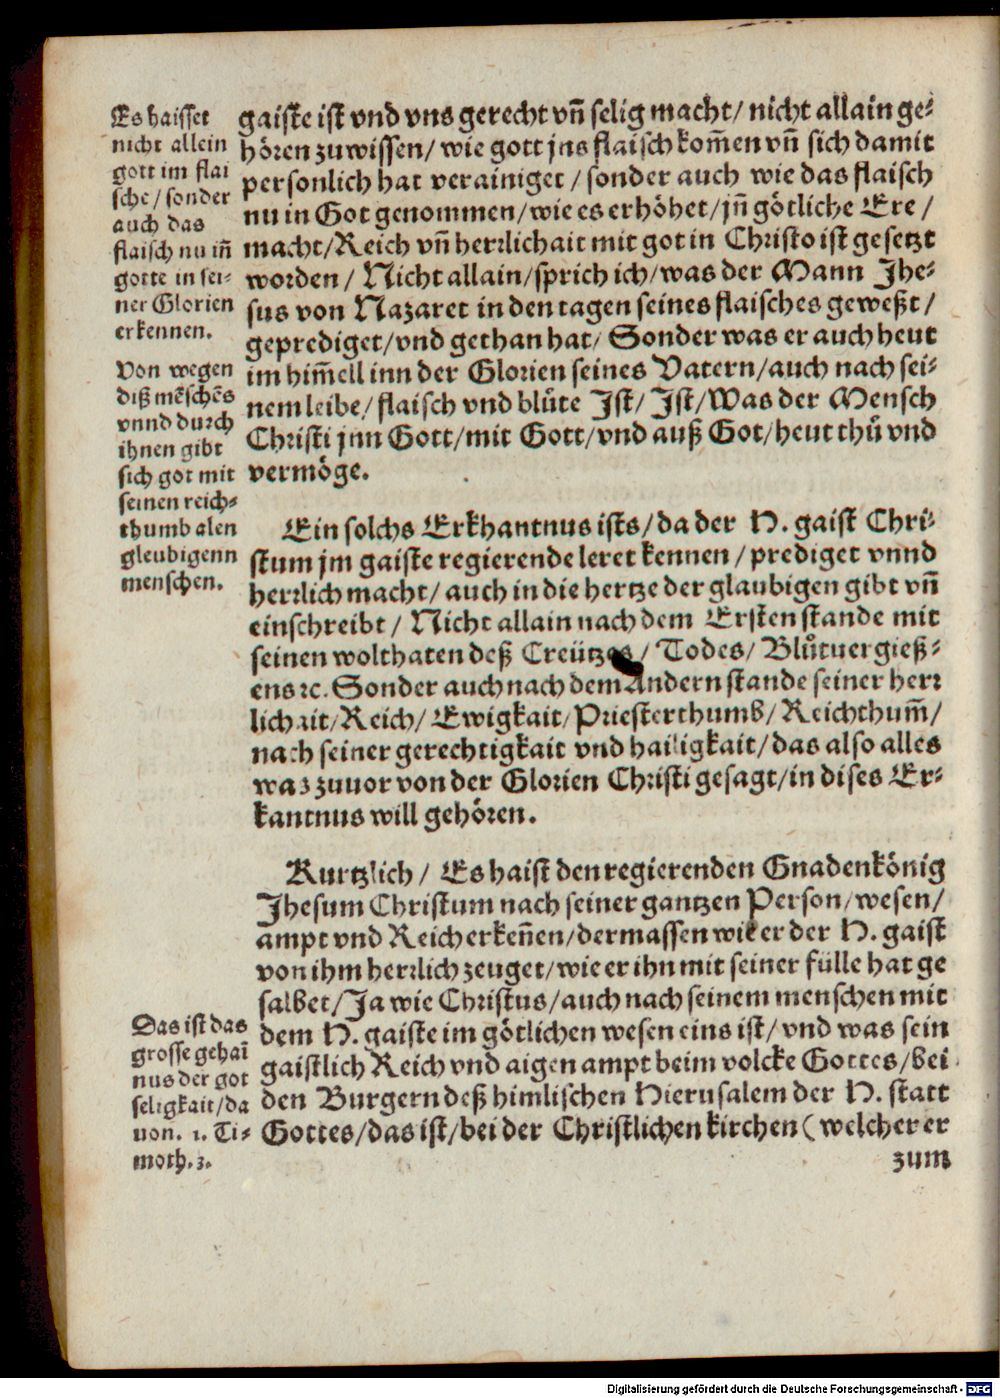 Es haisset
nicht allein
gott im flai
sche / sonder
auch das
flaisch nu iñ
gotte in sei-
ner Glorien
erkennen.
Von wegen
diß mēschēs
vnnd durch
ihnen gibt
sich got mit
seinen reich-
thumb alen
gleubigenn
menschen.
gaiste ist vnd vns gerecht vñ selig macht / nicht allain ge-
hören zuwissen / wie gott jns flaisch kom̄en vñ sich damit
personlich hat verainiget / sonder auch wie das flaisch
nu in Got genommen / wie es erhöhet / jñ götliche Ere /
macht / Reich vñ herrlichait mit got in Christo ist gesetzt
worden / Nicht allain / sprich ich / was der Mann Jhe-
sus von Nazaret in den tagen seines flaisches geweßt /
geprediget / vnd gethan hat / Sonder was er auch heut
im him̄ell inn der Glorien seines Vatern / auch nach sei-
nem leibe / flaisch vnd blůte Jst / Jst / Was der Mensch
Christi jnn Gott / mit Gott / vnd auß Got / heut thů vnd
vermöge.
Ein solchs Erkhantnus ists / da der H. gaist Chri-
stum jm gaiste regierende leret kennen / prediget vnnd
herrlich macht / auch in die hertze der glaubigen gibt vñ
einschreibt / Nicht allain nach dem Ersten stande mit
seinen wolthaten deß Creützes / Todes / Blůtuergieß-
ens ꝛc. Sonder auch nach dem Andern stande seiner herr
lichait / Reich / Ewigkait / Priesterthumb / Reichthum̄ /
nach seiner gerechtigkait vnd hailigkait / das also alles
was zuuor von der Glorien Christi gesagt / in dises Er-
kantnus will gehören.
Kurtzlich / Es haist den regierenden Gnadenkönig
Jhesum Christum nach seiner gantzen Person / wesen /
ampt vnd Reich erkeñen / dermassen wie er der H. gaist
von ihm herrlich zeuget / wie er ihn mit seiner fülle hat ge
salbet / Ja wie Christus / auch nach seinem menschen mit
dem H. gaiste im götlichen wesen eins ist / vnd was sein
gaistlich Reich vnd aigen ampt beim volcke Gottes / bei
den Burgern deß himlischen Hierusalem der H. statt
Gottes / das ist / bei der Christlichen kirchen ( welcher er
Das ist das
grosse gehai᷈
nus der got
seligkait / da
uon. 1. Ti-
moth. 3.
zum
Digitalisierung gefördert durch die Deutsche Forschungsgemeinschaft - DFG